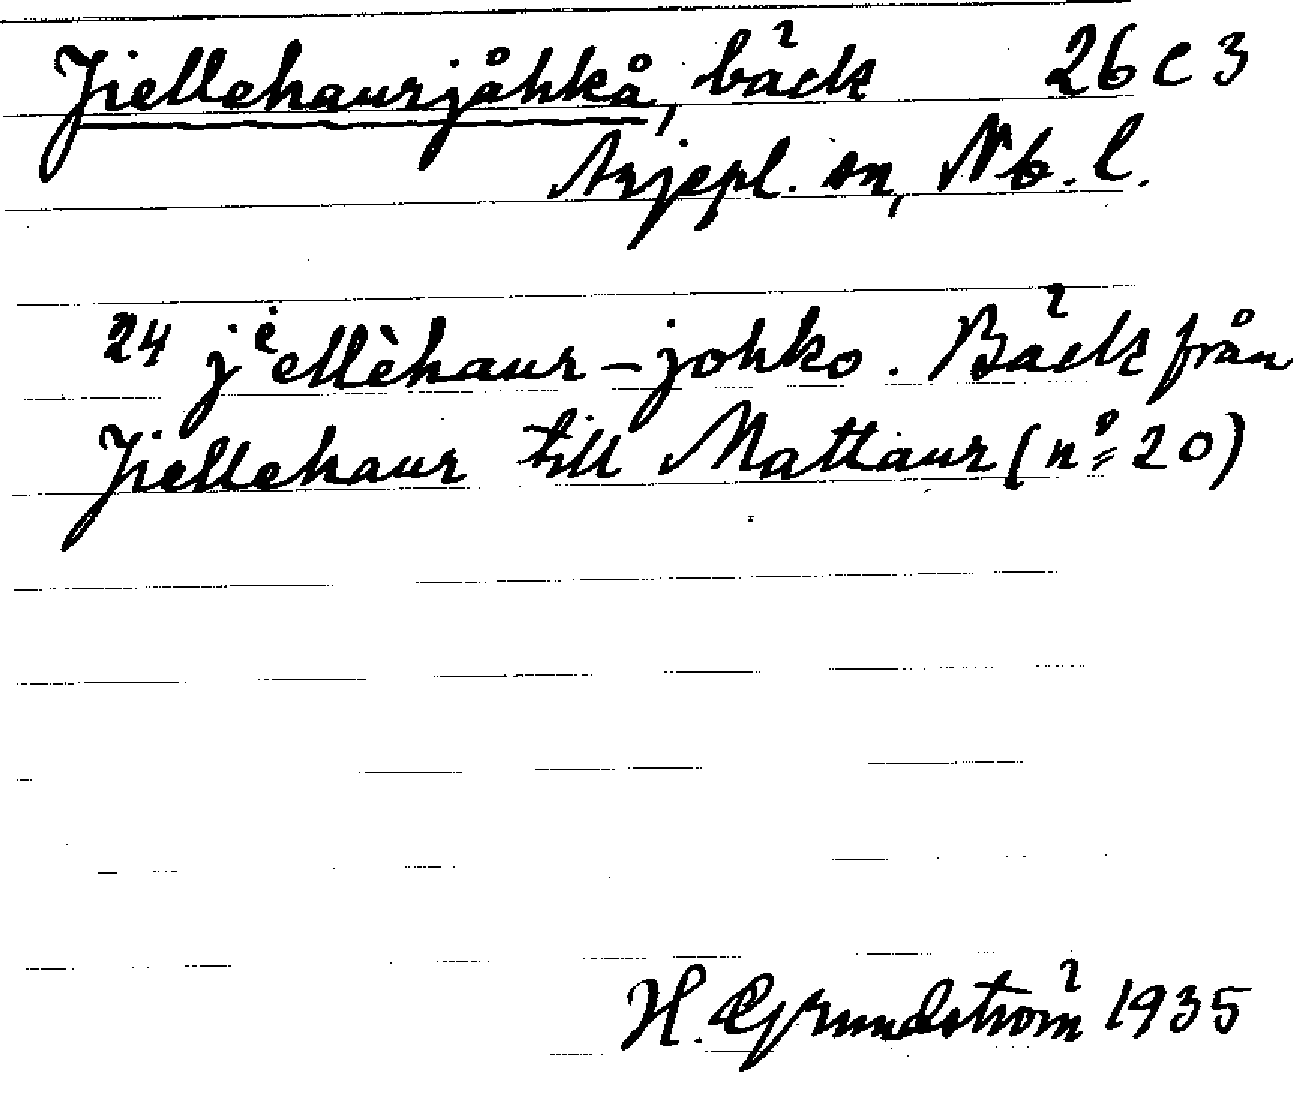 Jiellehaurjåhkå, bäck 26 C 3
Arjepl. sn, Nb. l.
24 jėellèhaur-johko. Bäck från
Jiellehaur till Mattaur (nº 20)
H. Grundström 1935